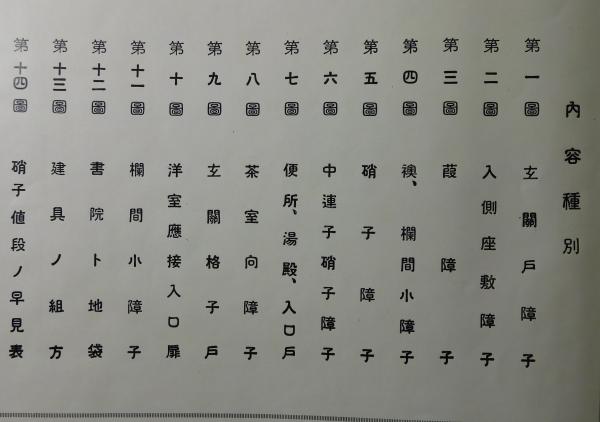 內容種別
第一圖 玄關戶障子
第二圖 入側座敷障子
第三圖 葭障子
第四圖 襖、欄間小障子
第五圖 硝子障子
第六圖 中連子硝子障子
第七圖 便所、湯殿、入口戶
第八圖 茶室向障子
第九圖 玄關格子戶
第十圖 洋室應接入口扉
第十一圖 欄間小障子
第十二圖 書院ト地袋
第十三圖 建具ノ組方
第十四圖 硝子値段ノ早見表